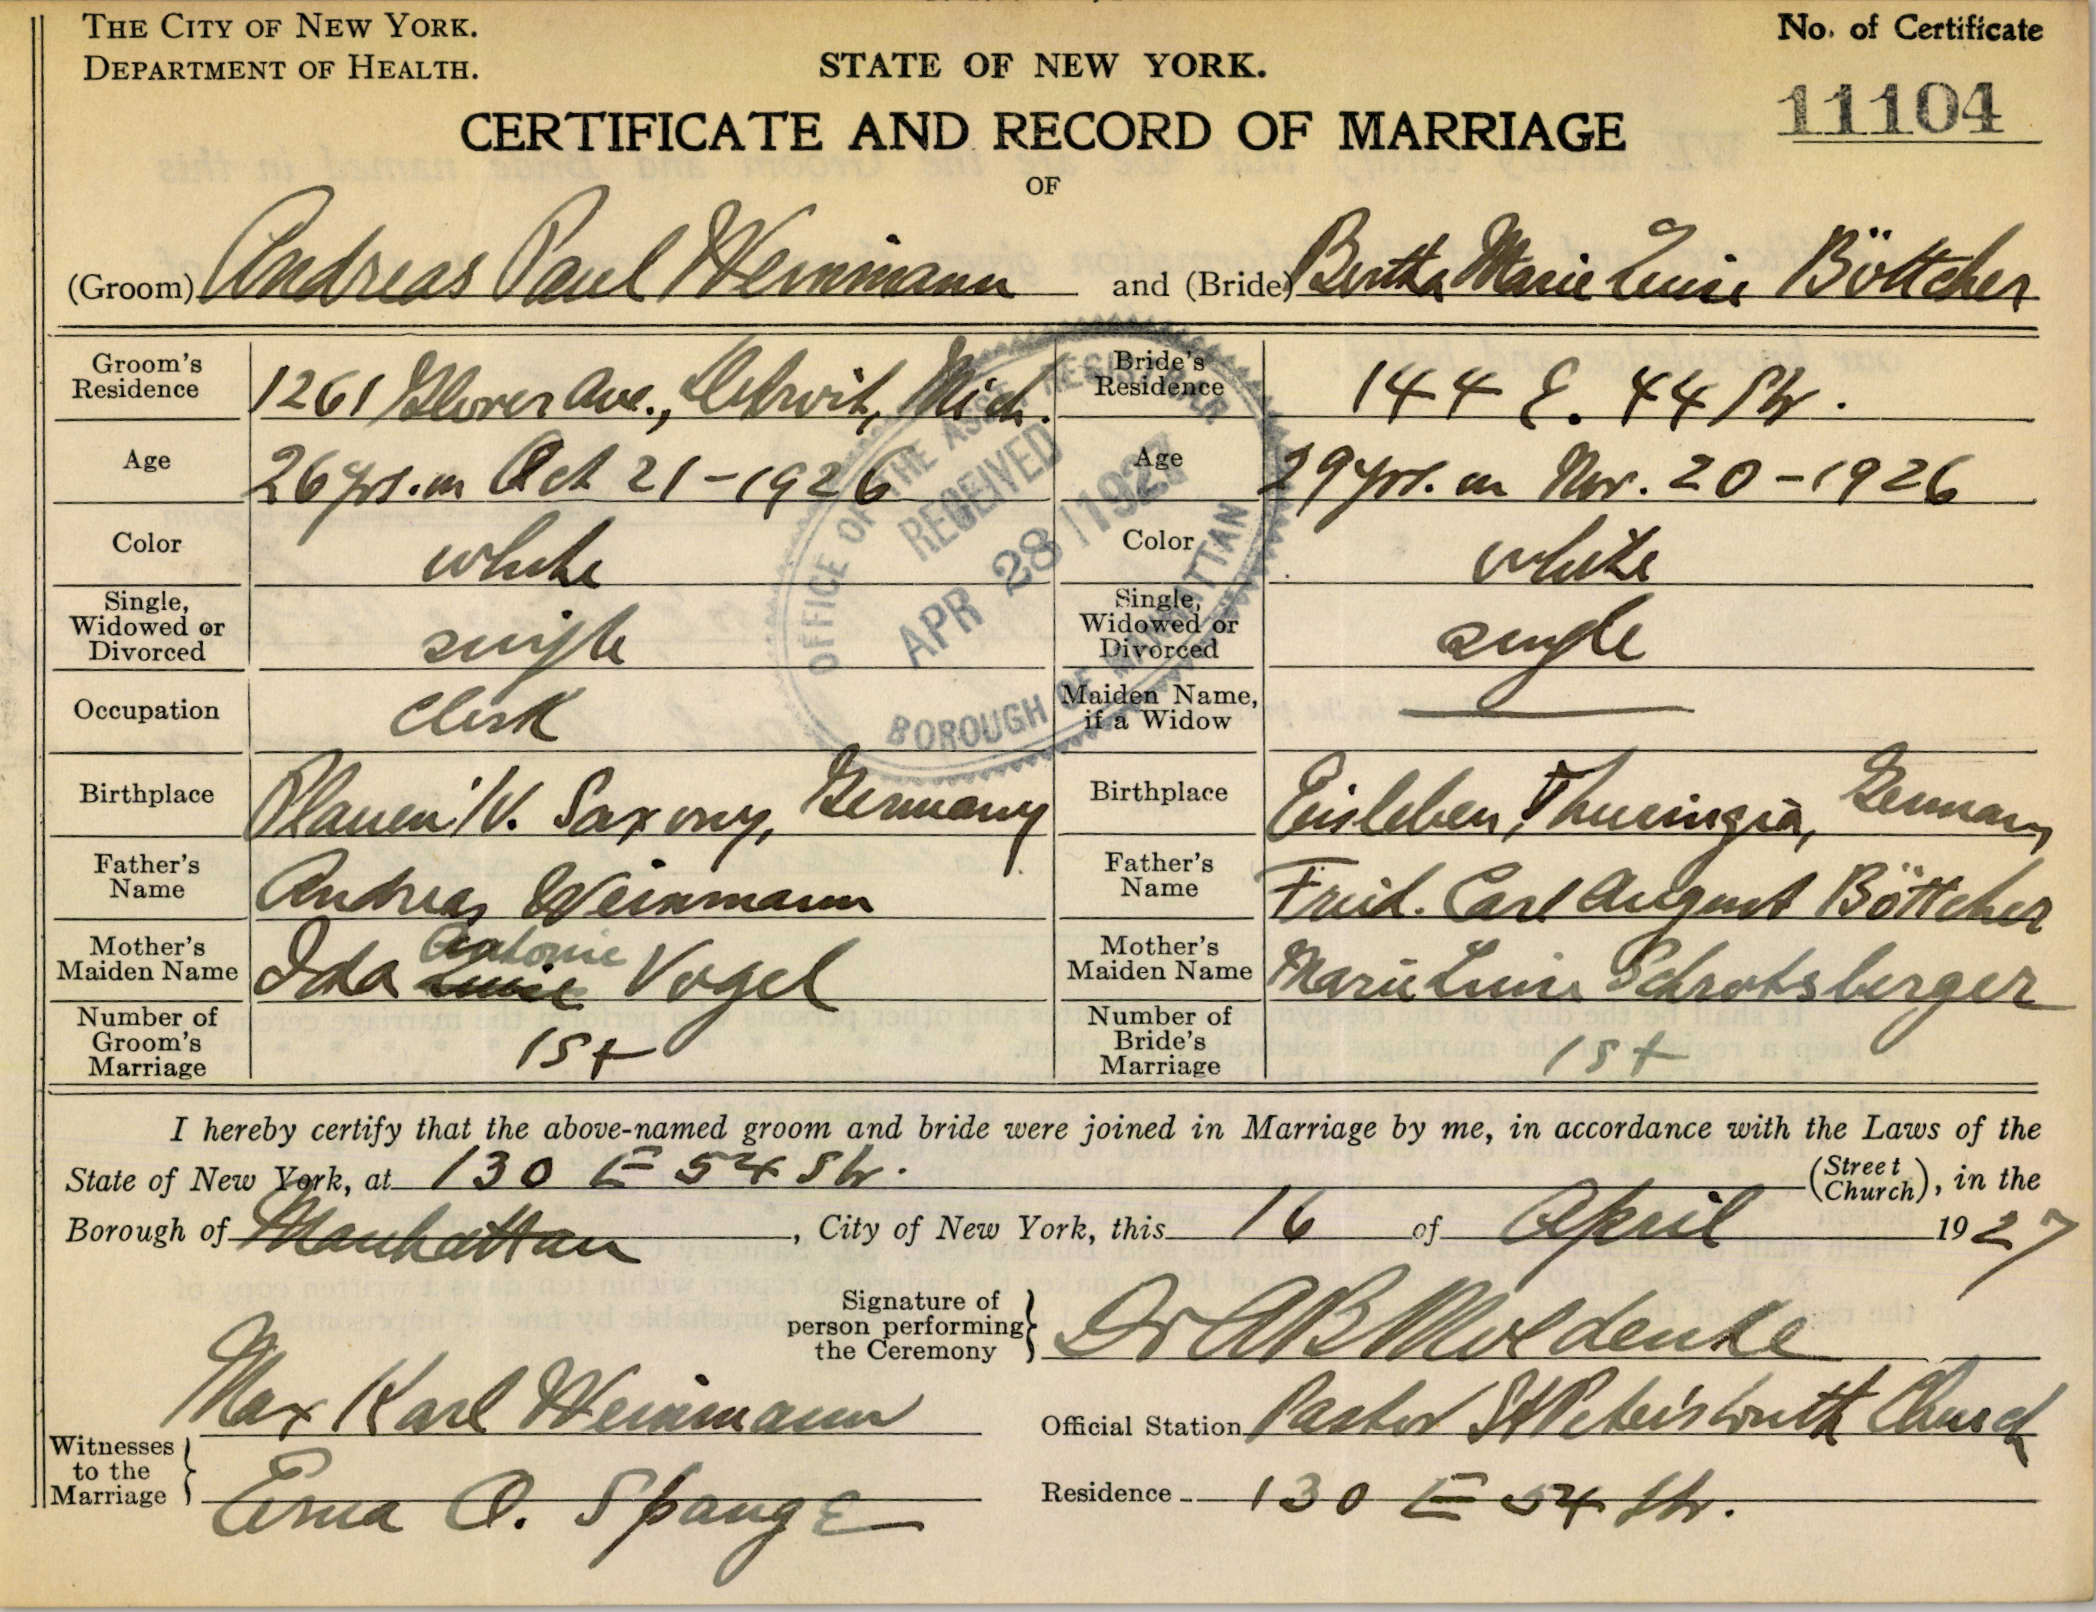 THE CITY OF NEW YORK.
DEPARTMENT OF HEALTH.
STATE OF NEW YORK.
No. of Certificate
11104
CERTIFICATE AND RECORD OF MARRIAGE
OF
(Groom) Andreas Paul Weinmann and (Bride) Bertha Marie Luise Böttcher
Groom's Residence 1261 Glover Ave., Detroit, Mich.
Bride's Residence 144 E. 44 Str.
Age 26 yrs. on Oct 21-1926
Age 29 yrs. on Nov. 20-1926
Color white
Color white
Single, Widowed or Divorced single
Single, Widowed or Divorced single
Occupation Clerk
Maiden Name, if a Widow
Birthplace Plauen i/V. Saxony, Germany
Birthplace Eisleben, Thuringia, Germany
Father's Name Andreas Weinmann
Father's Name Fried. Carl August Böttcher
Mother's Maiden Name Ida Antonie Luise Vogel
Mother's Maiden Name Marie Luise Schrotsberger
Number of Groom's Marriage 1st
Number of Bride's Marriage 1st
OFFICE OF THE ASST. REGISTRAR
RECEIVED
APR 28 1927
BOROUGH OF MANHATTAN
I hereby certify that the above-named groom and bride were joined in Marriage by me, in accordance with the Laws of the
State of New York, at 130 E 54 Str. (Street Church), in the
Borough of Manhattan, City of New York, this 16 of April 1927
Signature of person performing the Ceremony Dr A B Moldenke
Witnesses to the Marriage
Max Karl Weinmann
Erna O. Spange
Official Station Pastor St Peter's Luth Church
Residence 130 E 54 Str.